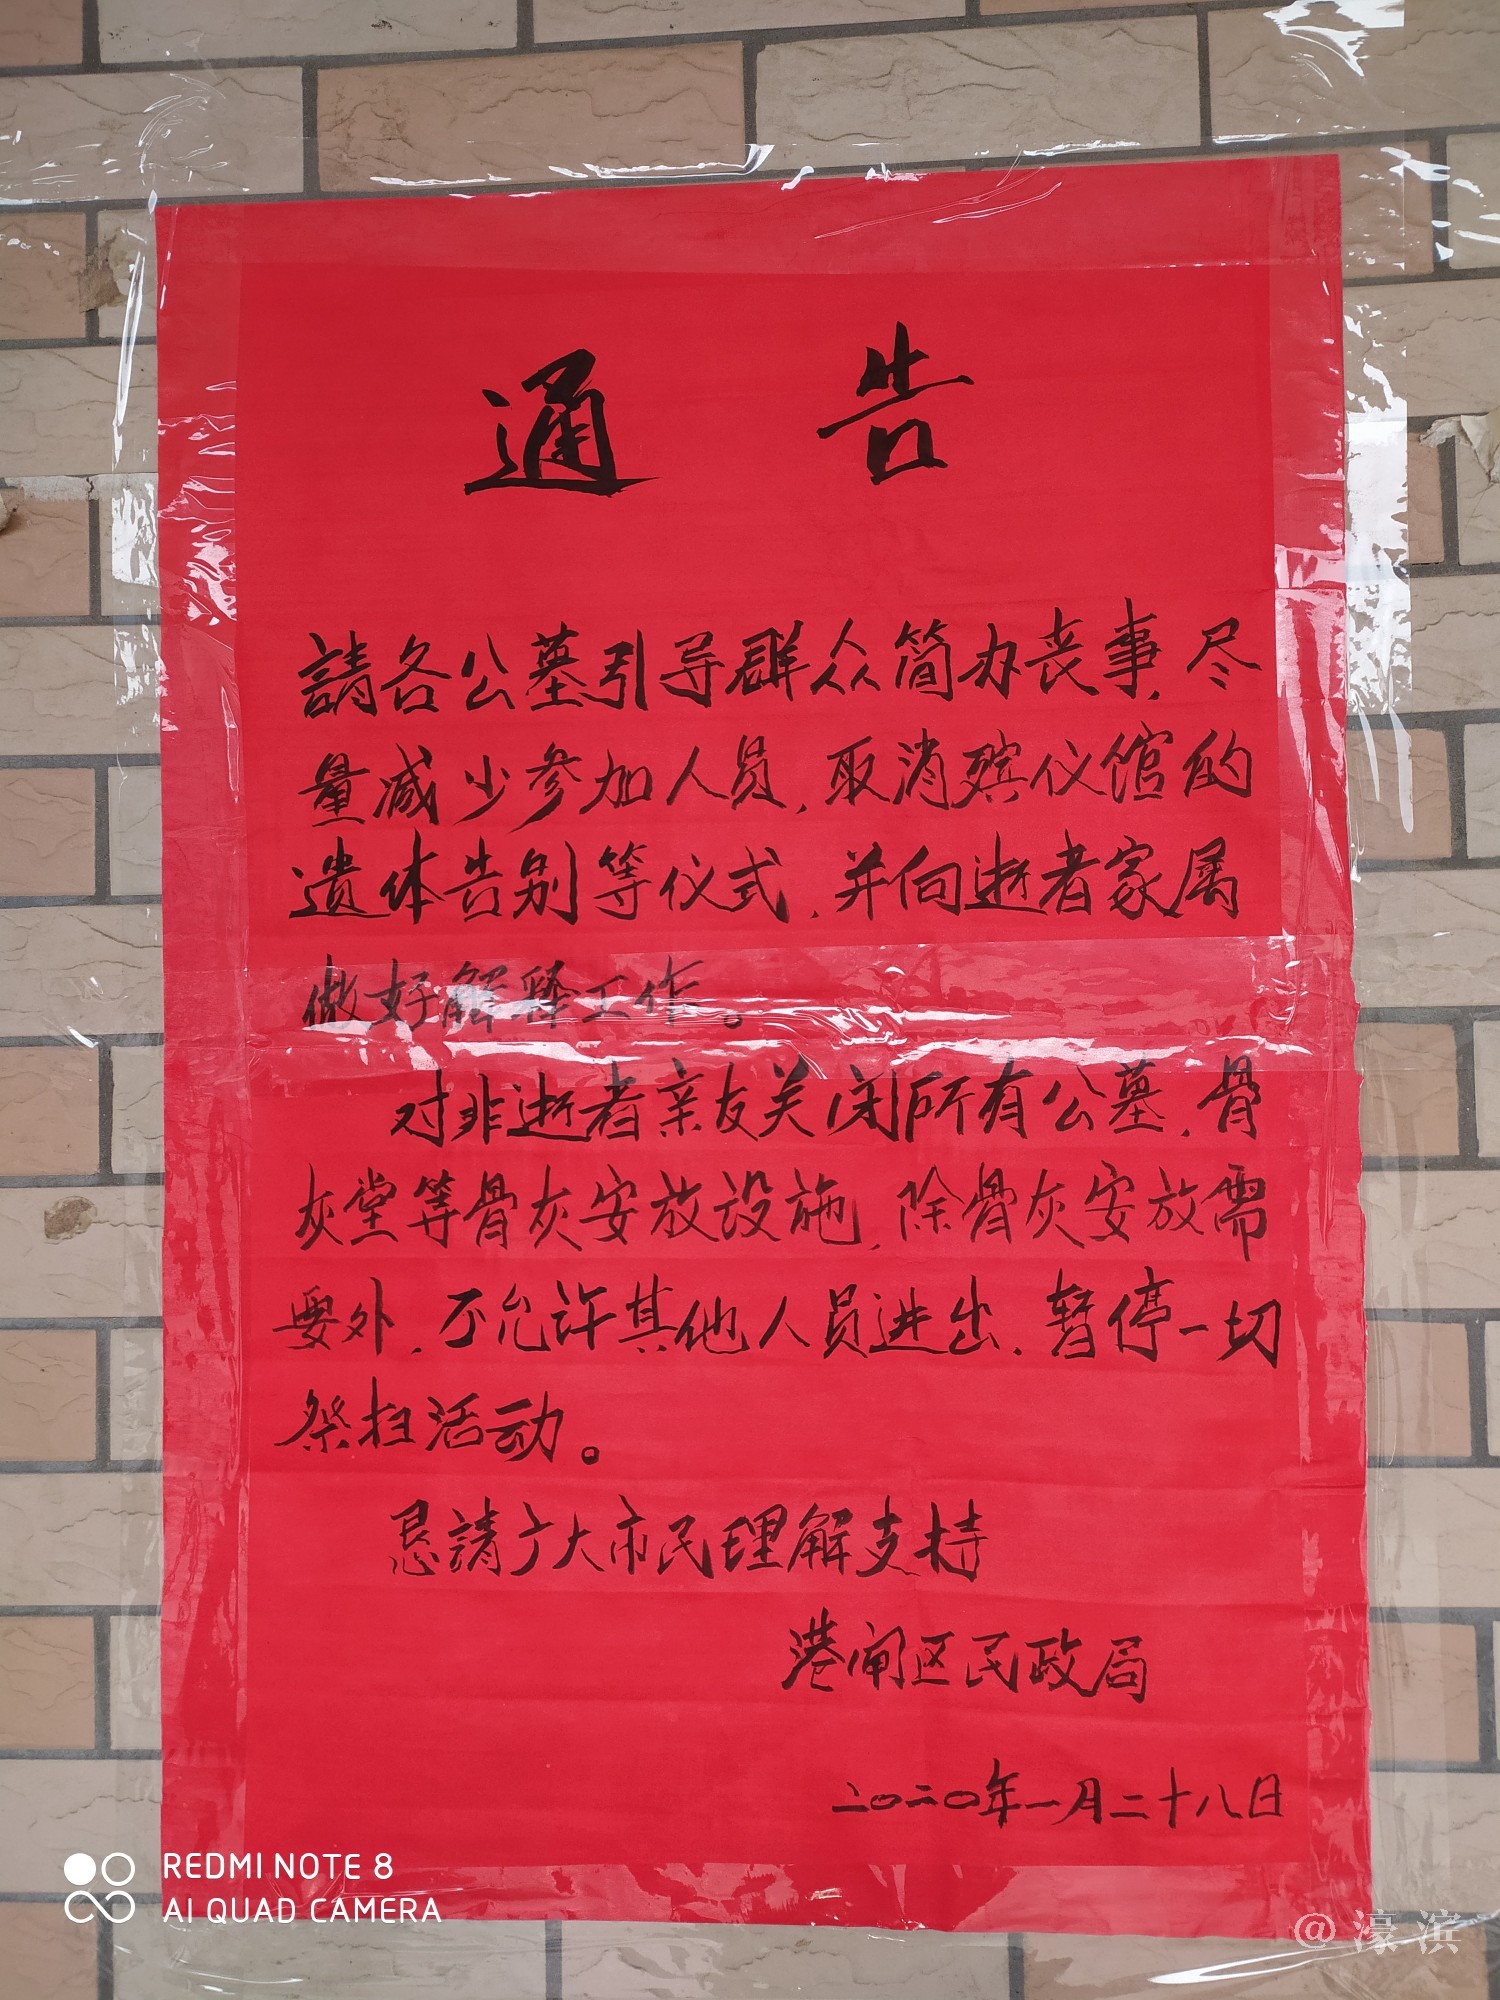 通 告
請各公墓引导群众简办丧事，尽
量减少参加人员，取消殡仪馆的
遗体告别等仪式，并向逝者家属
做好解释工作。
对非逝者亲友关闭所有公墓、骨
灰堂等骨灰安放设施，除骨灰安放需
要外，不允许其他人员进出，暂停一切
祭扫活动。
恳請广大市民理解支持
港闸区民政局
二〇二〇年一月二十八日
REDMI NOTE 8
AI QUAD CAMERA
@濠滨